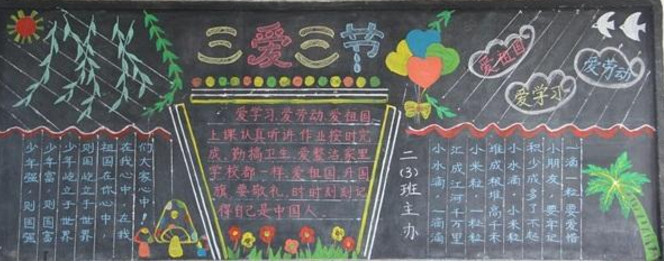 三爱三节
爱祖国
爱学习
爱劳动
少年强，则国强
少年富，则国富
少年屹立于世界
则国屹立于世界
祖国在你心中，
在我心中，在我
们大家心中！
爱学习，爱劳动，爱祖国，
上课认真听讲，作业按时完
成，勤搞卫生，爱整洁，家里
学校都一样，爱祖国，升国
旗，要敬礼，时时刻刻记
得自己是中国人。
二(3)班主办
小水滴，一滴滴
汇成江河千万里
小米粒，一粒粒
堆成粮堆高千米
小水滴，小米粒
积少成多了不起
小朋友，要牢记
一滴一粒要爱惜